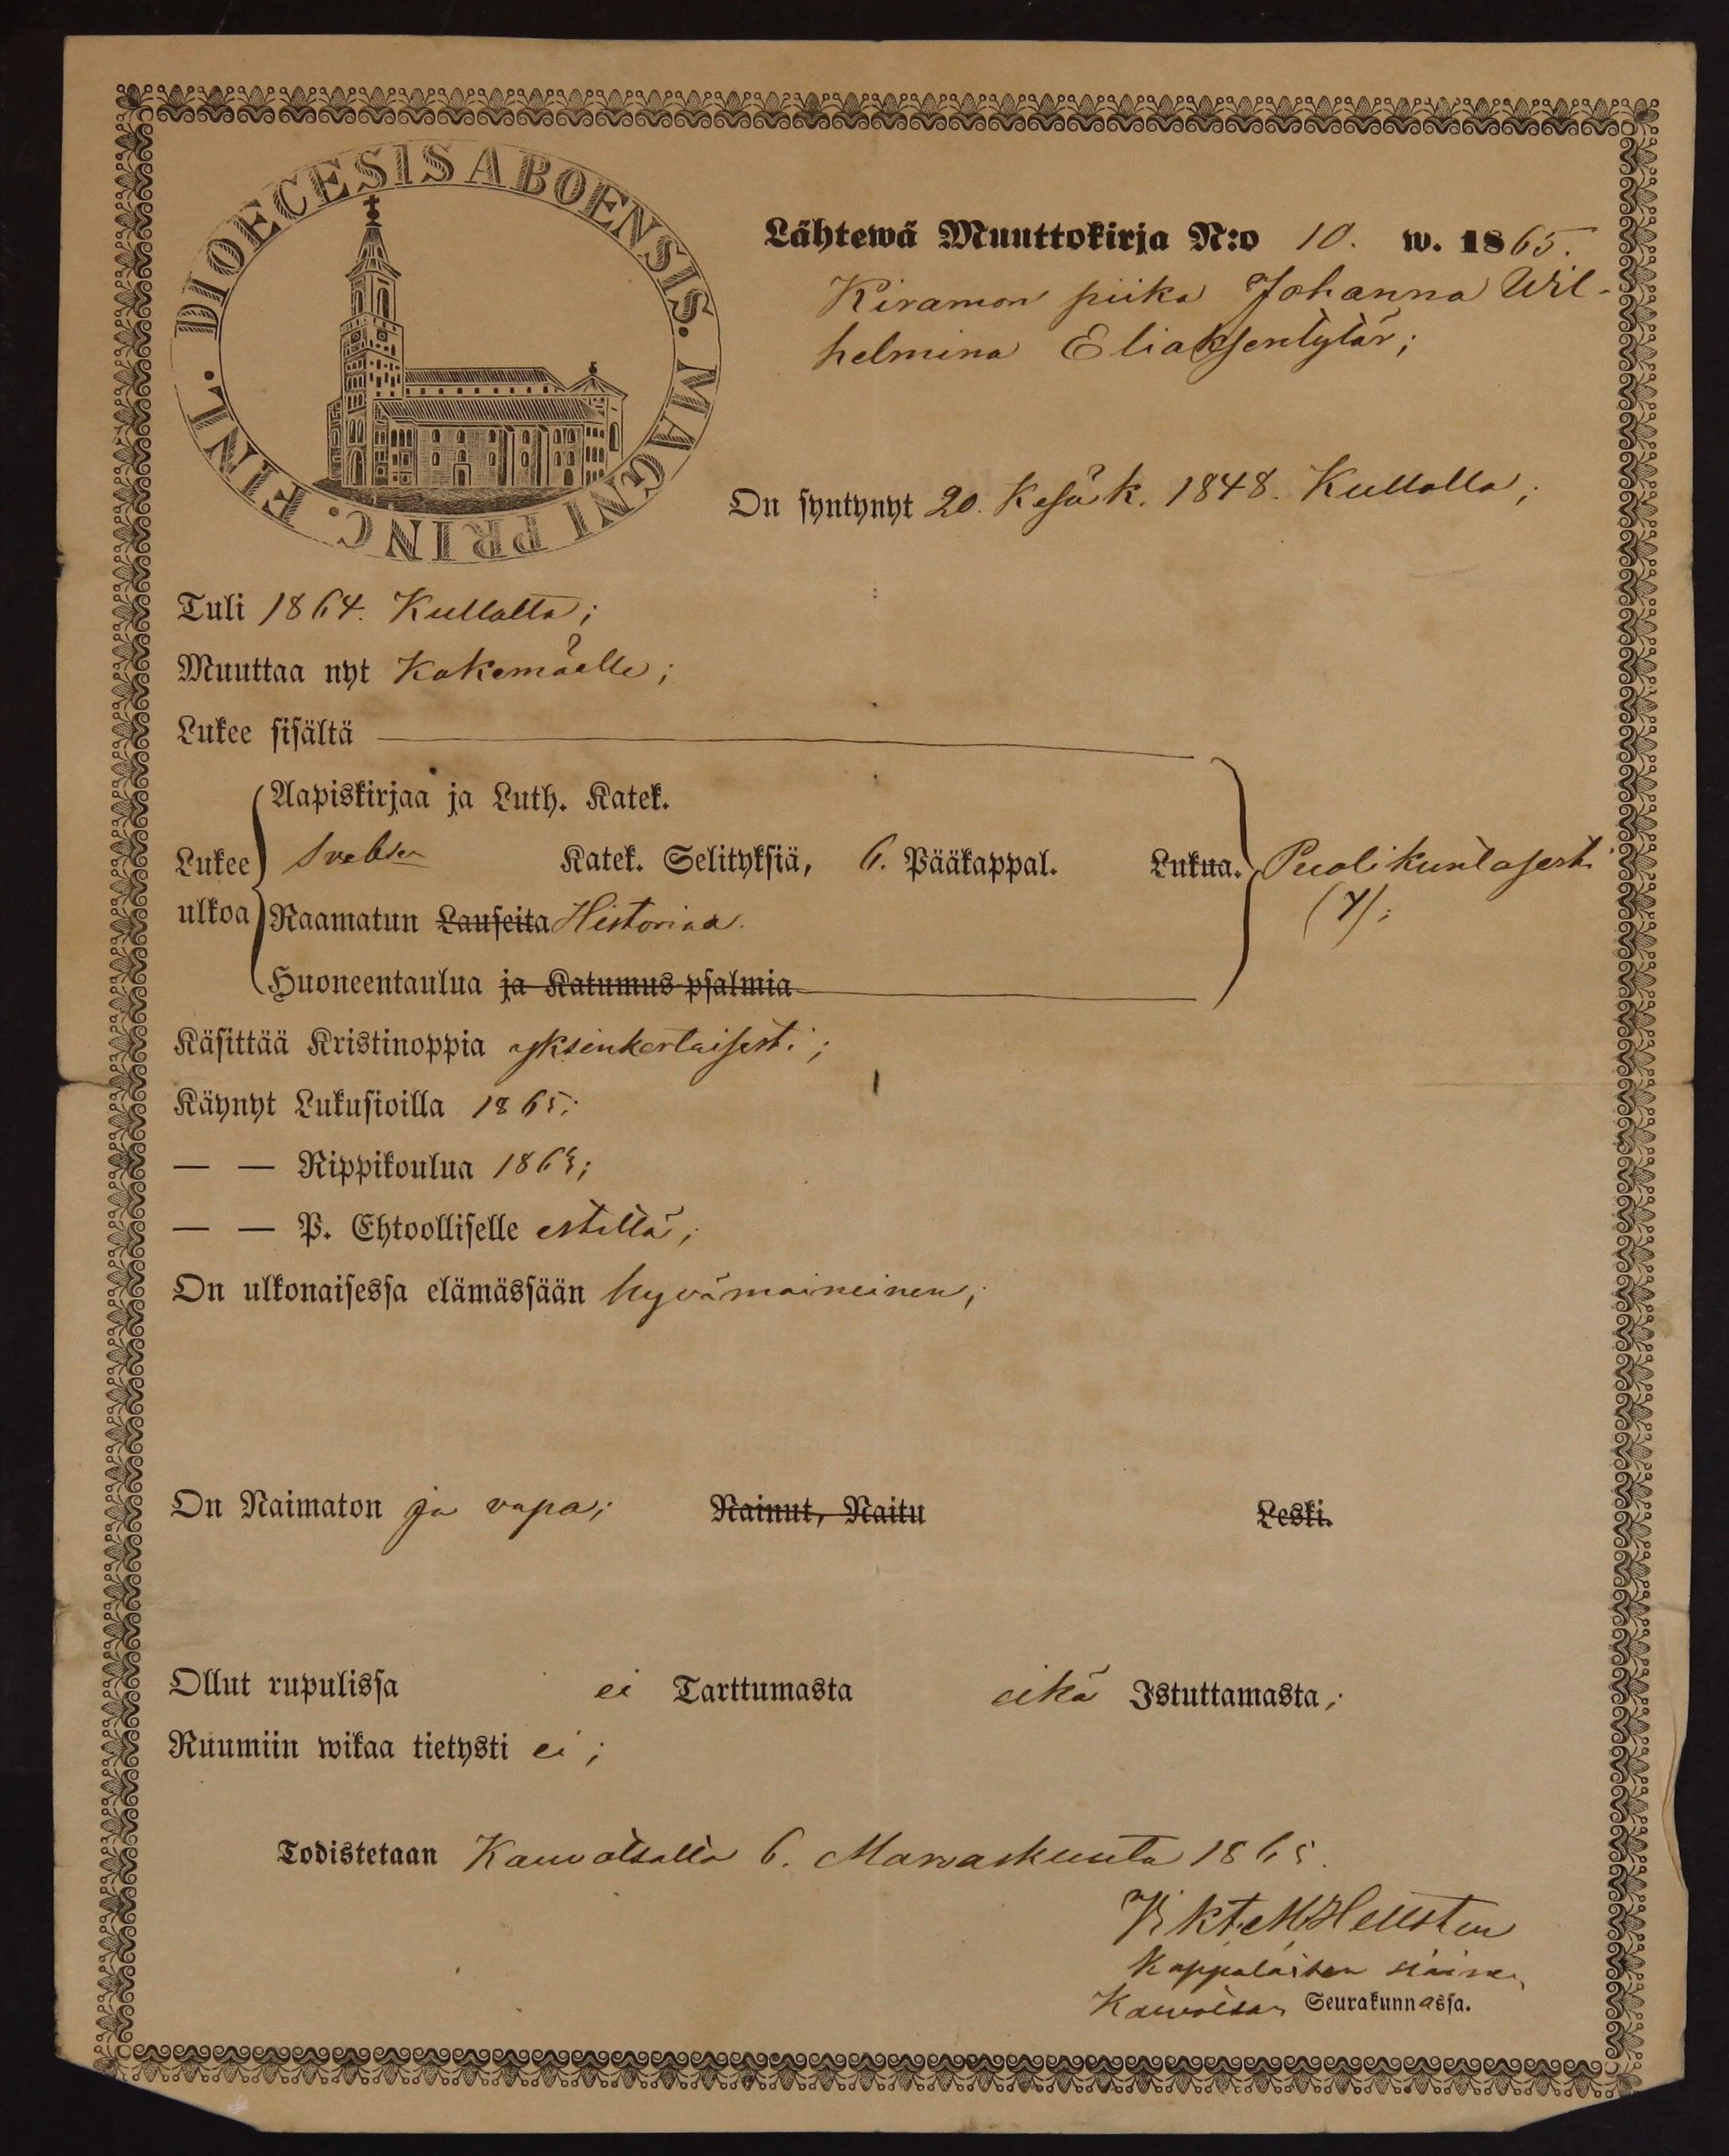 DIOECESIS ABOENSIS. MAGNI PRINC. FINL.
Lähtewä Muuttokirja N:o 10. w. 1865.
Kiramon piika Johanna Wil-
helmina Eliaksentytär;
On syntynyt 20. Kesäk. 1848. Kullalla;
Tuli 1864. Kullalta;
Muuttaa nyt Kokemäelle;
Lukee sisältä
Aapiskirjaa ja Luth. Katek.
Lukee Svebsen Katek. Selityksiä, 6. Pääkappal. Lukua. Puolikuntasesti
ulkoa Raamatun Lauseita Historiaa.
Huoneentaulua ja Katumus-psalmia
Käsittää Kristinoppia yksinkertaisesti;
Käynyt Lukusioilla 1865;
— — Rippikoulua 1865;
— — P. Ehtoolliselle estettä;
On ulkonaisessa elämässään hyvämaineinen;
On Naimaton ja vapa; Nainut, Naitu Leski.
Ollut rupulissa ei Tarttumasta eikä Istuttamasta;
Ruumiin wikaa tietysti ei;
Todistetaan Kauvatsalla 6. Marraskuuta 1865.
Hellsten
Kappalaisen
Kauvatsan Seurakunnassa.